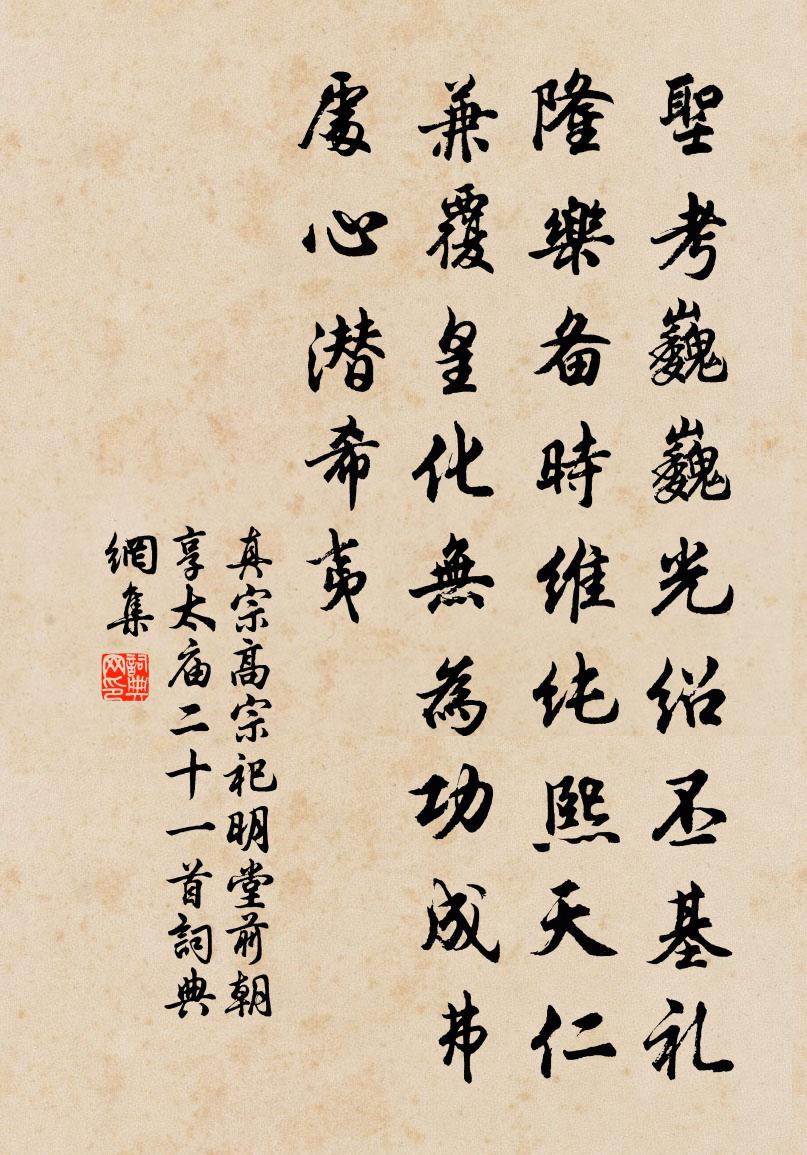 聖考巍巍光绍丕基礼
隆樂备時维纯熙天仁
兼覆皇化無為功成弗
處心潜希夷
真宗高宗祀明堂前朝
享太庙二十一首詞典
網集
詞典
网印